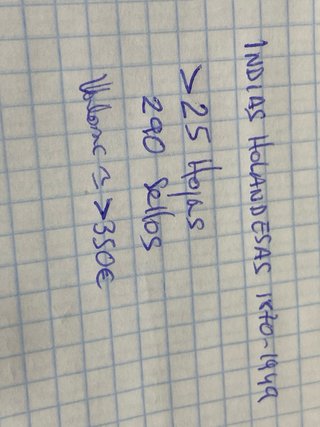 INDIAS HOLANDESAS 1870-1949
> 25 Hojas
290 Sellos
≃ > 350€